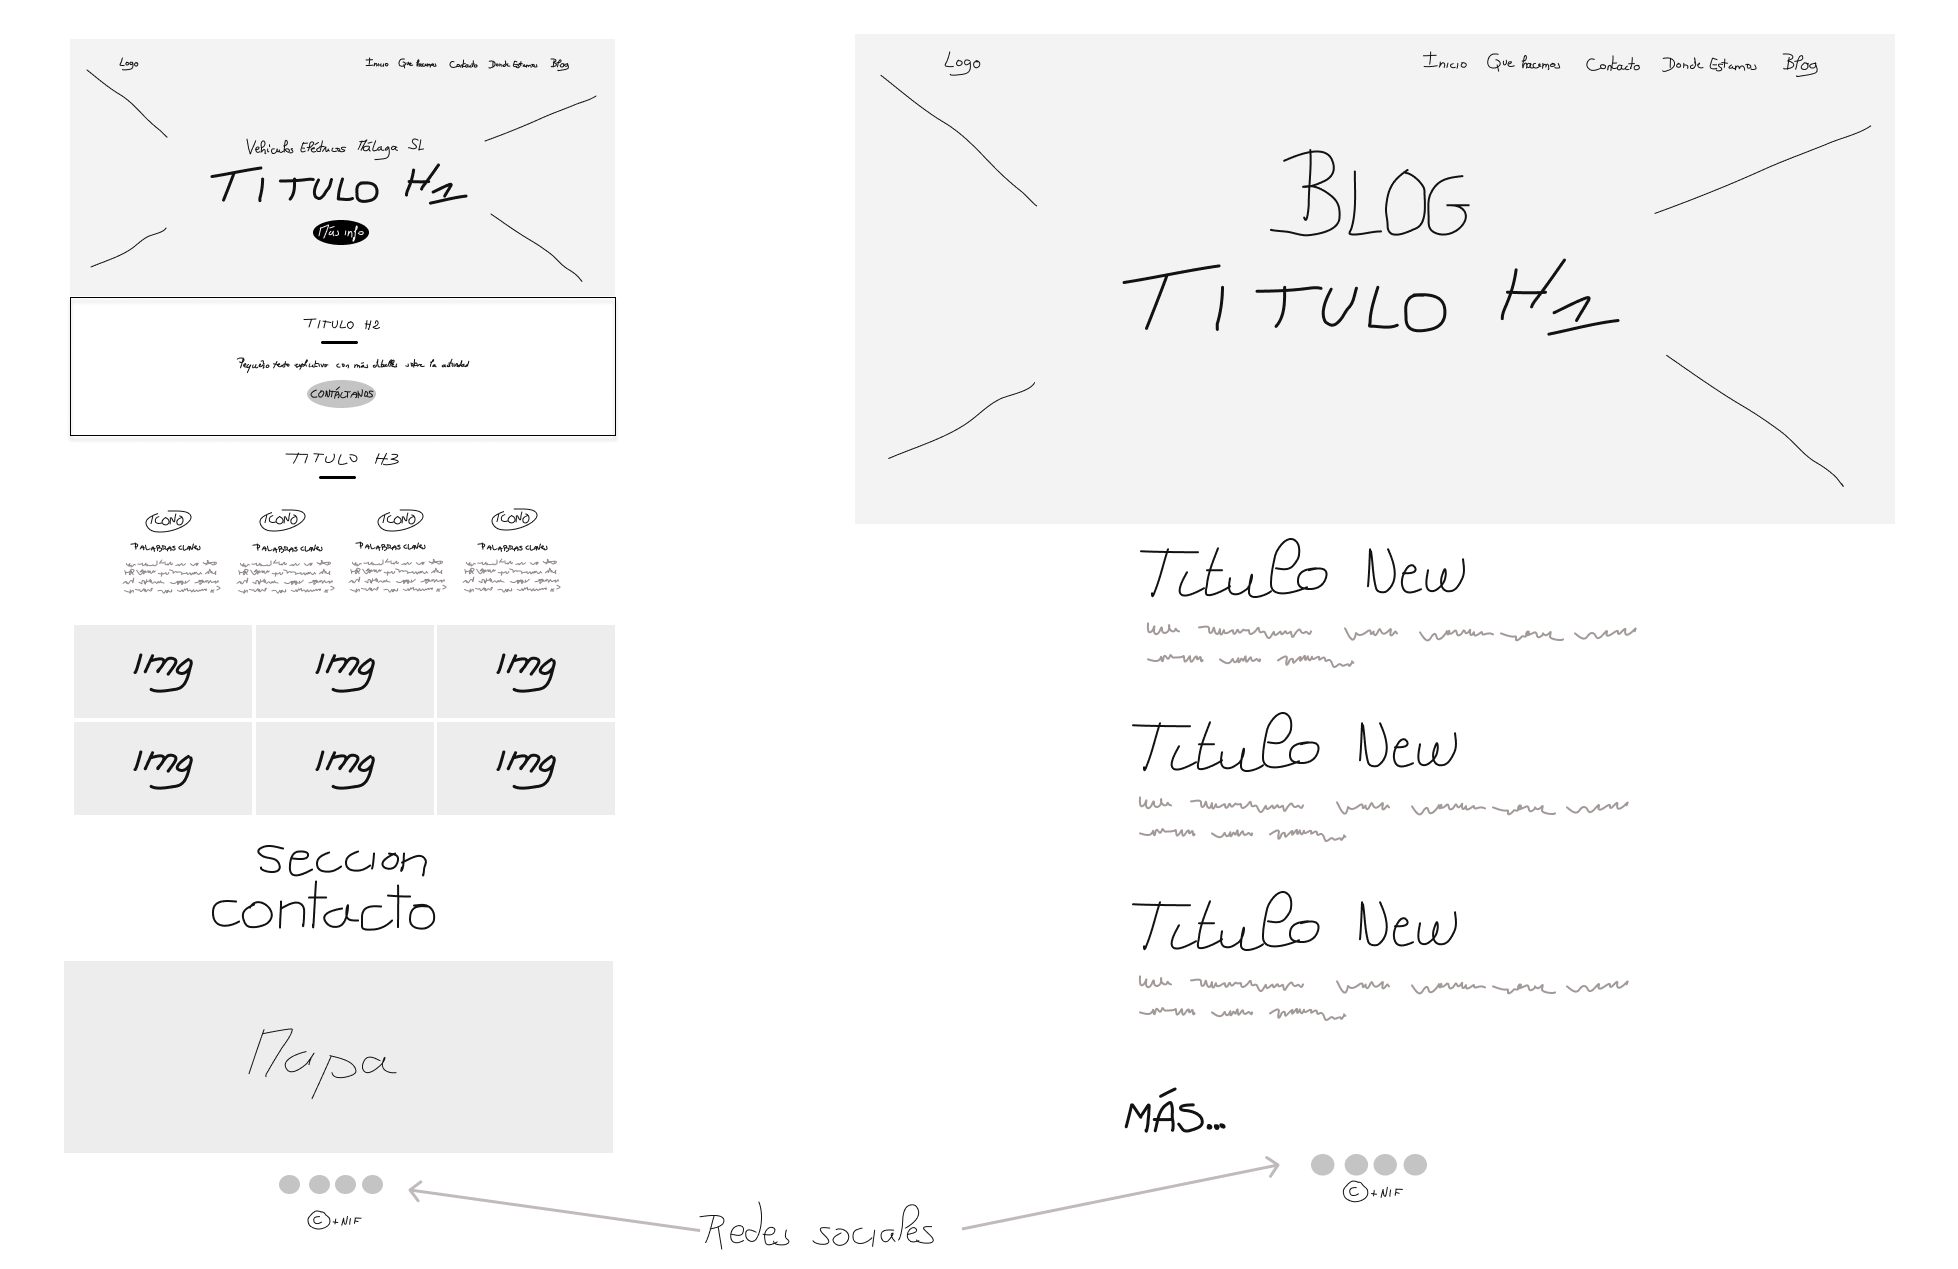 Logo
Inicio Que hacemos Contacto Donde Estamos Blog
Vehiculos Eléctricos Málaga SL
TITULO H1
Más info
TITULO H2
Pequeño texto explicativo con más detalles sobre la actividad
CONTÁCTANOS
TITULO H3
ICONO ICONO ICONO ICONO
PALABRAS CLAVES PALABRAS CLAVES PALABRAS CLAVES PALABRAS CLAVES
Img Img Img
Img Img Img
seccion
contacto
Mapa
© + NIF
Logo
Inicio Que hacemos Contacto Donde Estamos Blog
BLOG
TITULO H1
Titulo New
Titulo New
Titulo New
MÁS...
© + NIF
Redes sociales